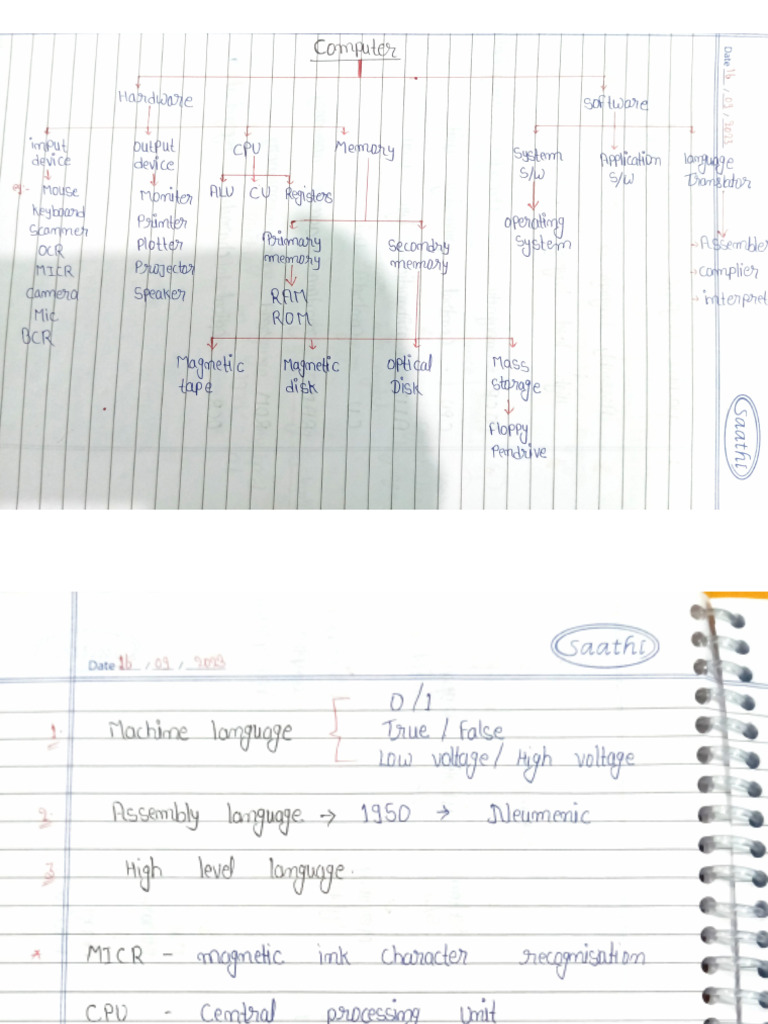 Computer
Date 16 / 09 / 2023
Hardware
Software
input device
output device
CPU
Memory
System S/W
Application S/W
language Translator
eg:- Mouse
Keyboard
Scanner
OCR
MICR
Camera
Mic
BCR
Moniter
Printer
Plotter
Projector
Speaker
ALU CU Registers
Primary memory
Secondry memory
RAM
ROM
Operating System
Assembler
complier
interpret
Magnetic tape
Magnetic disk
Optical Disk
Mass storage
Floppy
Pendrive
Saathi
Saathi
Date 16 / 09 / 2023
1. Machine language
0/1
True / False
Low voltage / High voltage
2. Assembly language → 1950 → Neumenic
3. High level language.
* MICR - magnetic ink character recognisation
CPU - Central processing Unit